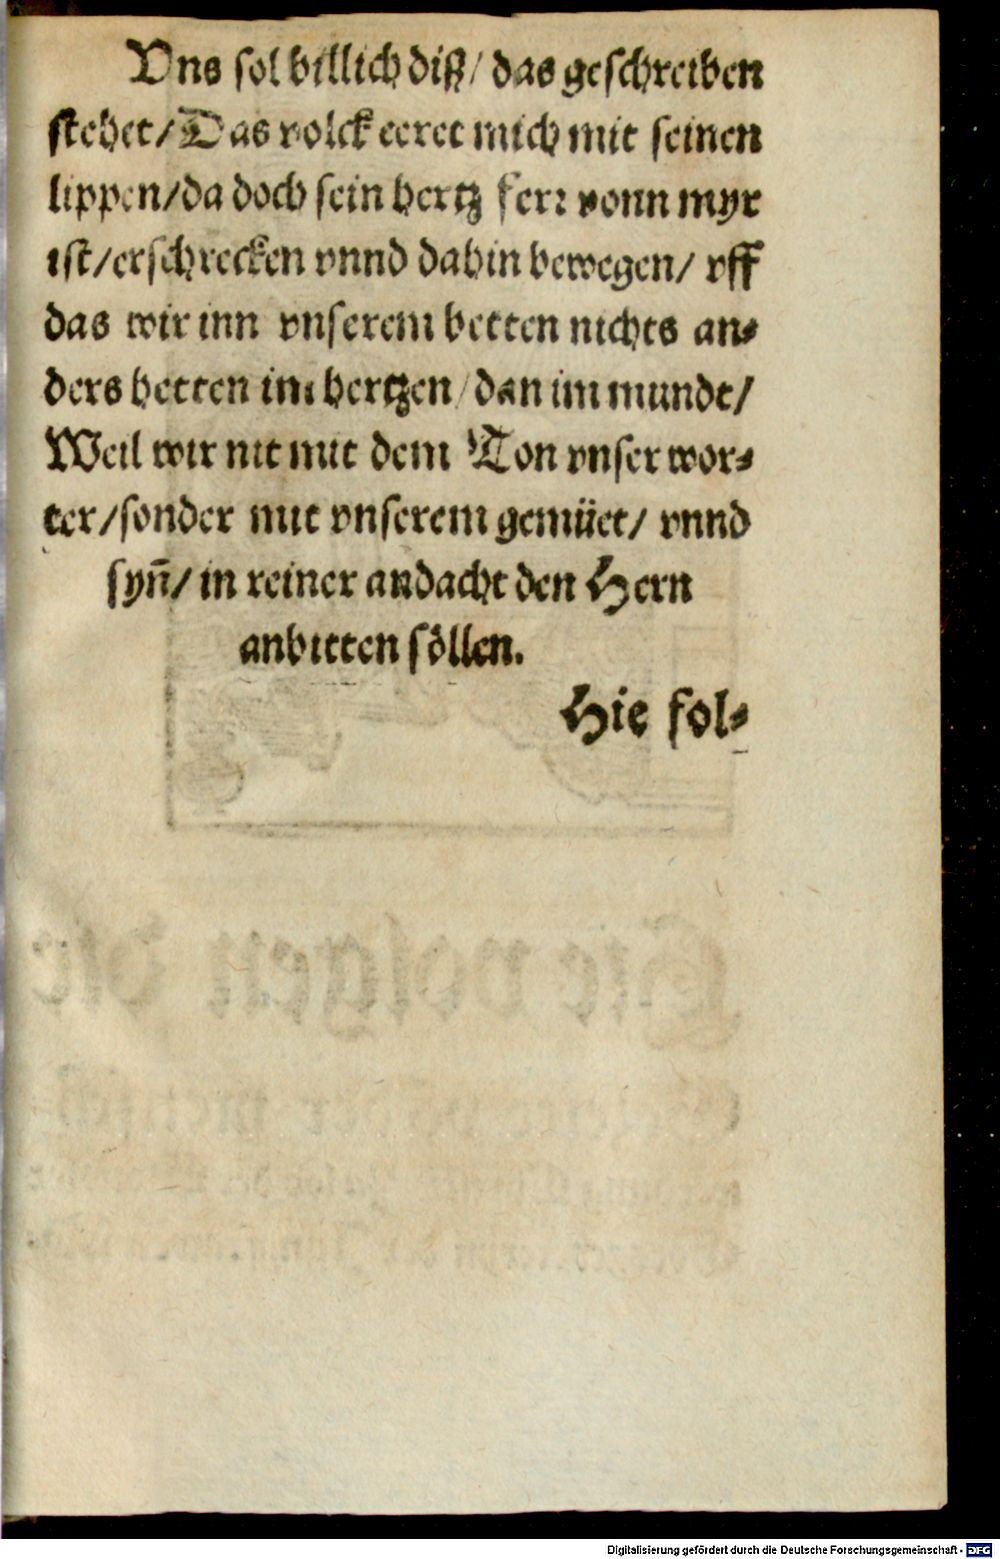 Vns sol billich diß/ das geschreiben
stehet/Das volck eeret mich mit seinen
lippen/da doch sein hertz ferr vonn myr
ist/erschrecken vnnd dahin bewegen/ vff
das wir inn vnserem betten nichts an⸗
ders betten im hertzen/dan im munde/
Weil wir nit mit dem Ton vnser wor⸗
ter/sonder mit vnserem gemüet/ vnnd
syn̄/ in reiner andacht den Hern
anbitten söllen.
Hie fol⸗
Digitalisierung gefördert durch die Deutsche Forschungsgemeinschaft - DFG